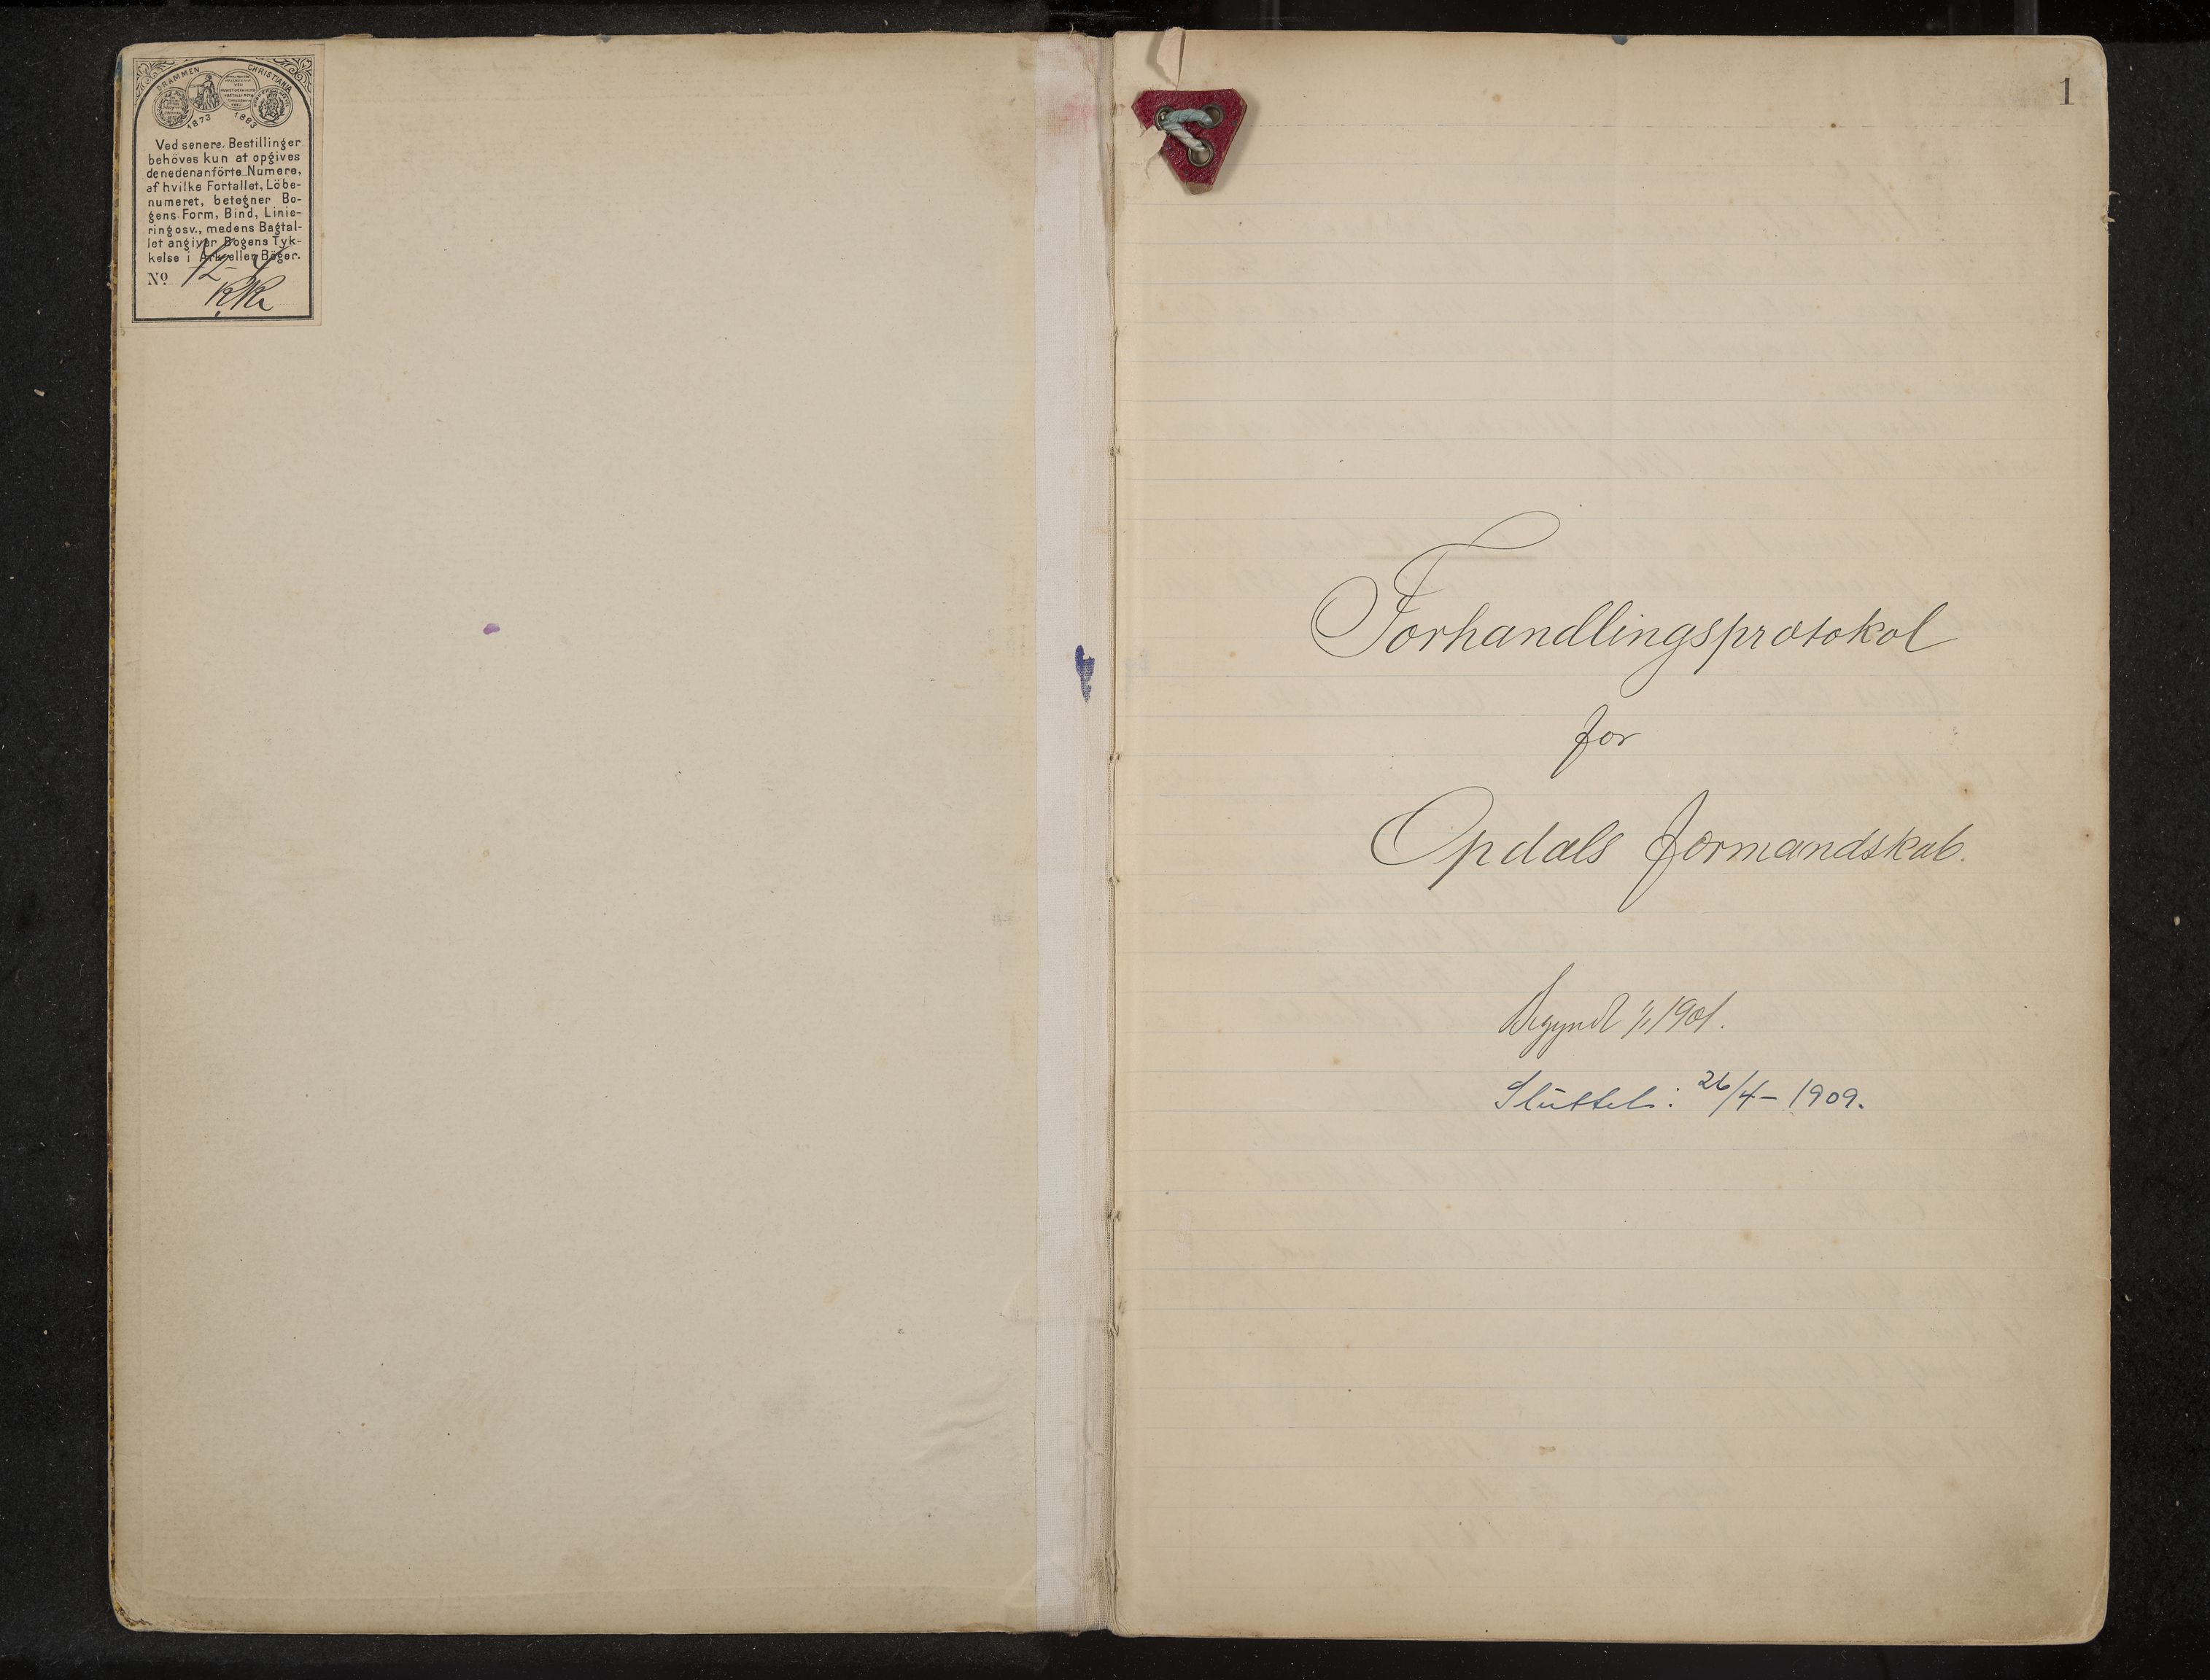 DRAMMEN CHRISTIANIA
1873 1883
Ved senere Bestillinger
behöves kun at opgives
denedenanförte Numere,
af hvilke Fortallet, Löbe-
numeret, betegner Bo-
gens Form, Bind, Linie-
ring osv., medens Bagtal-
let angiver Bogens Tyk-
kelse i Ark eller Böger.
No
1
Forhandlingsprotokol
for
Opdals formandskab.
Begyndt 1/1 1901.
Sluttet: 26/4 – 1909.